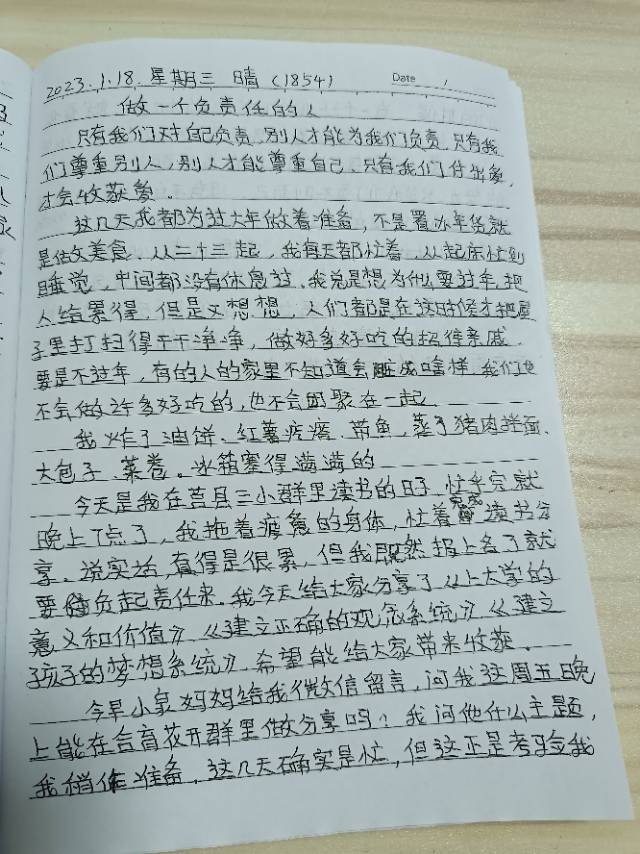 2023.1.18. 星期三 晴 (1854)
Date /
做一个负责任的人
只有我们对自己负责,别人才能为我们负责,只有我
们尊重别人,别人才能尊重自己,只有我们付出爱,
才会收获爱.
这几天我都为过大年做着准备,不是置办年货就
是做美食,从二十三起,我每天都忙着,从起床忙到
睡觉,中间都没有休息过.我总是想为什么要过年,把
人给累得,但是又想想,人们都是在这时候才把屋
子里打扫得干干净净,做好多好吃的招待亲戚.
要是不过年,有的人的家里不知道会脏成啥样,我们也
不会做许多好吃的,也不会团聚在一起.
我炸了油饼、红薯疙瘩、带鱼,蒸了猪肉拌面、
大包子、菜卷。冰箱塞得满满的
今天是我在莒县三小群里读书的日子,忙乎完就
晚上7点了,我拖着疲惫的身体,忙着完成读书分
享。说实话,真得是很累,但我既然报上名了就
要负起责任来。我今天给大家分享了《上大学的
意义和价值》《建立正确的观念系统》《建立
孩子的梦想系统》,希望能给大家带来收获。
今早小泉妈妈给我微信留言,问我这周五晚
上能在合育花开群里做分享吗?我问他什么主题,
我稍作准备,这几天确实是忙,但这正是考验我